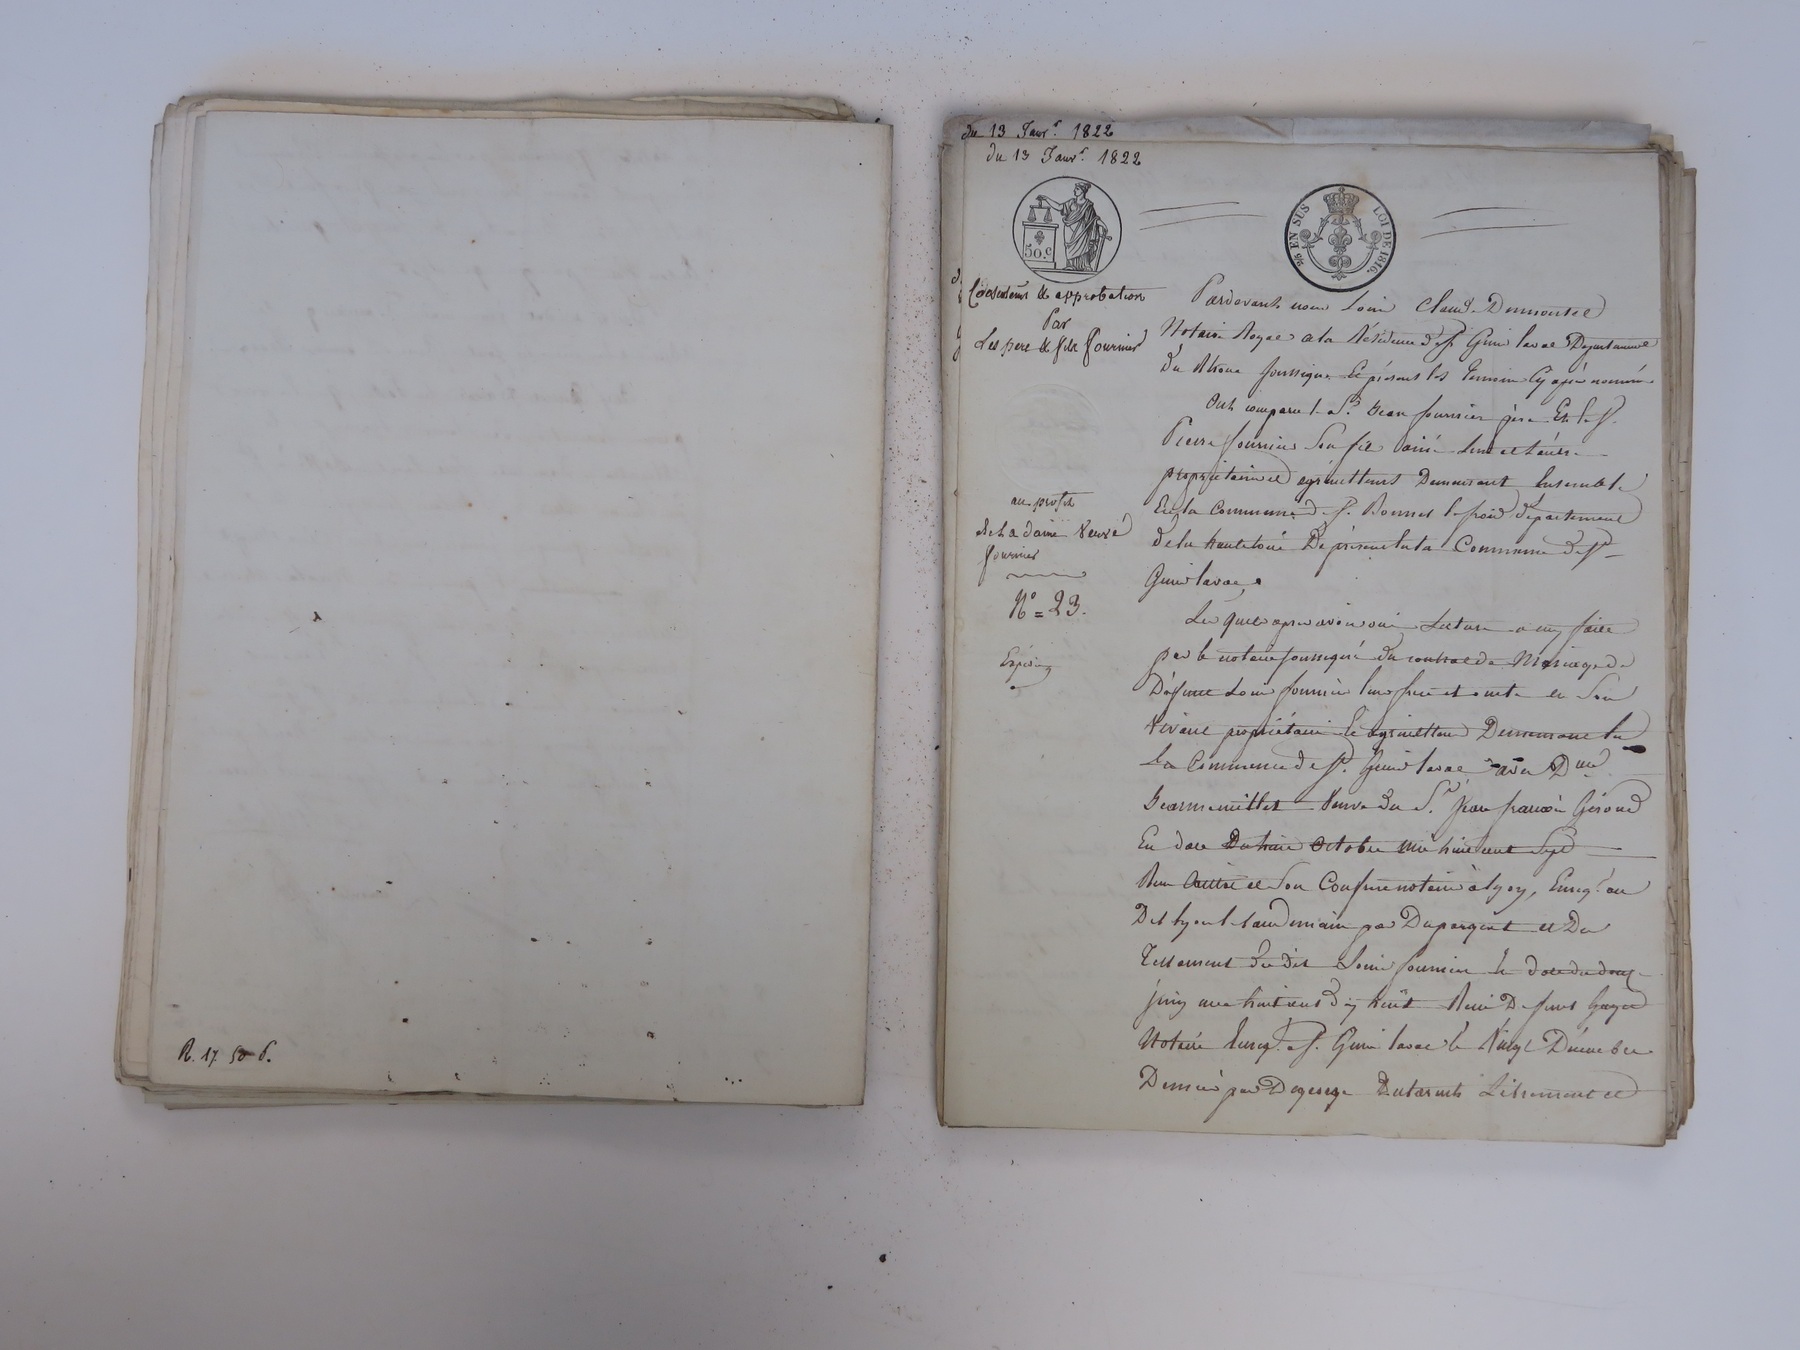 R. 17 50 6.
du 13 Janv.r 1822
du 13 Janv.r 1822
50.c
25 EN SUS LOI DE 1816.
& approbation
Par
Les pere & fils fournier
au profit
de la dame Veuve
fournier
N.o = 23.
Pardevant nous Louis Claude
Notaire Royal a la Résidence de St. Genis laval Département
du Rhone soussigné Et présents les temoins cy après nommés
Ont comparu le Sr. Jean fournier père Et le Sr.
Pierre fournier Son fils ainé
propriétaires et Demeurant Ensemble
En la Commune de St. Bonnet le froid département
de la haute loire De présent en la Commune de St.
Genis laval,
Les quels apres avoir oui Lecture a eux faite
par le notaire soussigné du contrat de Mariage de
Défunt Louis fournier leur frere et oncle en Son
Vivant propriétaire Et Demeurant En
La Commune de St. Genis laval avec Dme
Veuve du Sr. Jean francois Giroud
En date Du Octobre mil huit cent Sept
Reçu et Son Confrere notaire à lyon, Enreg. au
Dit lyon le lendemain par et Du
Testament du dit Louis fournier En date du douze
juin mil huit cent dix huit Reçu Defunt
Notaire Enreg. a St. Genis laval le Vingt Décembre
Dernier par Degeorge